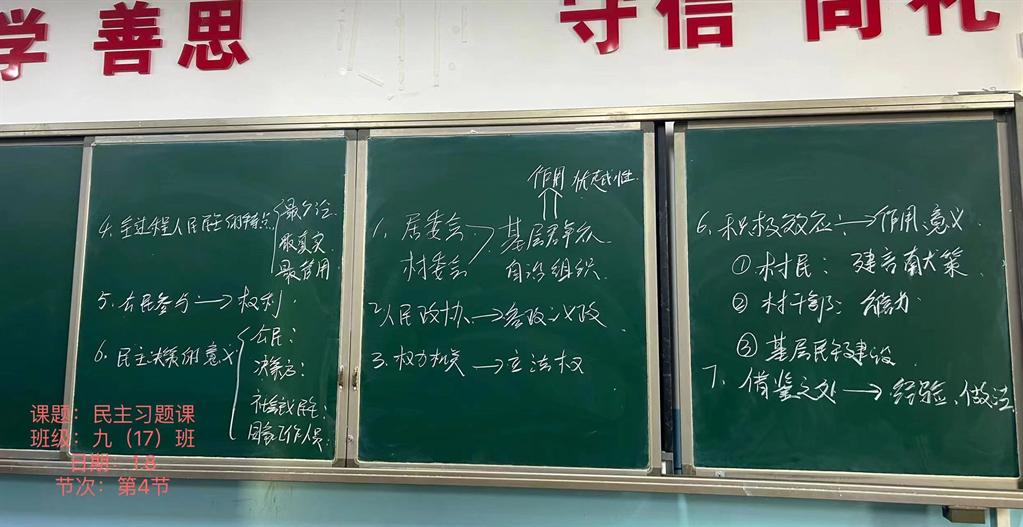 学 善思
守信 尚礼
4、全过程人民民主的特点
最广泛
最真实
最管用
5、公民参与→权利:
6、民主决策的意义
公民:
决策方:
国家工作人员:
作用 优越性
1、居委会
村委会
基层群众
自治组织
2、人民政协→参政议政
3、权力机关→立法权
6、积极效应:→作用、意义
①村民: 建言献策
②村干部:
③基层民主建设
7、借鉴之处→经验、做法
课题:民主习题课
班级:九(17)班
日期:1.8
节次:第4节